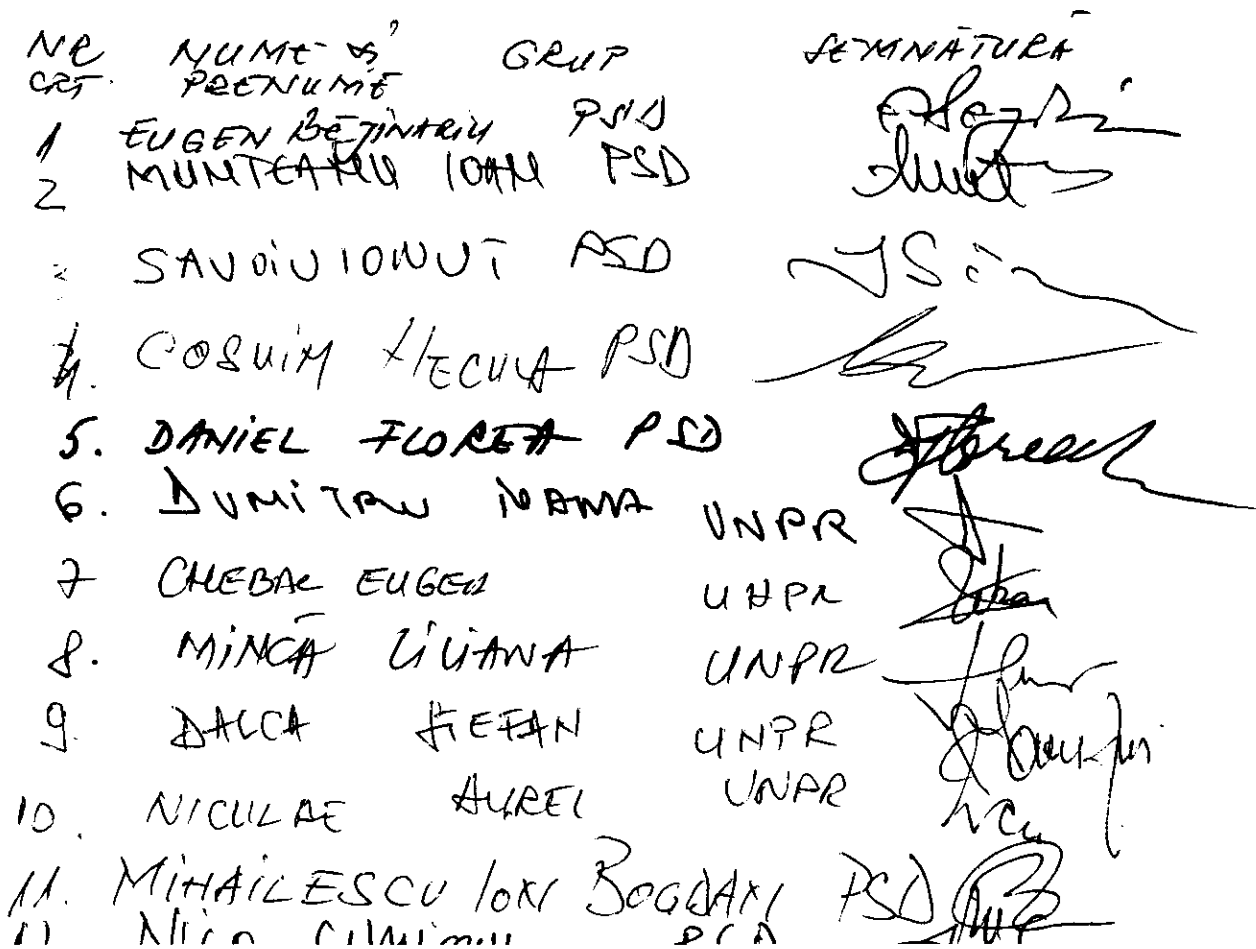 NR NUME și GRUP SEMNĂTURĂ
CRT. PRENUME
1 EUGEN BEJINARIU PSD
2 MUNTEANU IOAN PSD
SAVOIU IONUȚ PSD
4. COSUIM NECULA PSD
5. DANIEL FLOREA PSD
6. DUMITRU IVANA UNPR
7 CHEBAC EUGEN UNPR
8. MINCĂ LILIANA UNPR
9. DALCA ȘTEFAN UNPR
10. NICULAE AUREL UNPR
11. MIHAILESCU ION BOGDAN PSD
NICA PSD